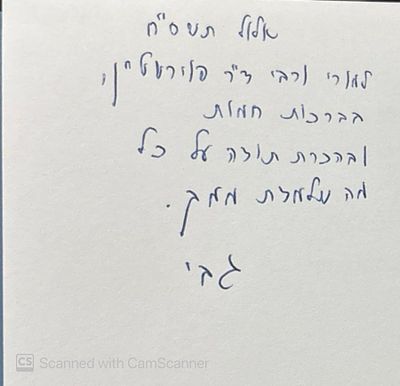 אלול תשס"ח
למורי ורבי ד"ר פוירשטיין,
בברכות חמות
ובהכרת תודה על כל
מה שלמדת ממך.
גבי
CS Scanned with CamScanner